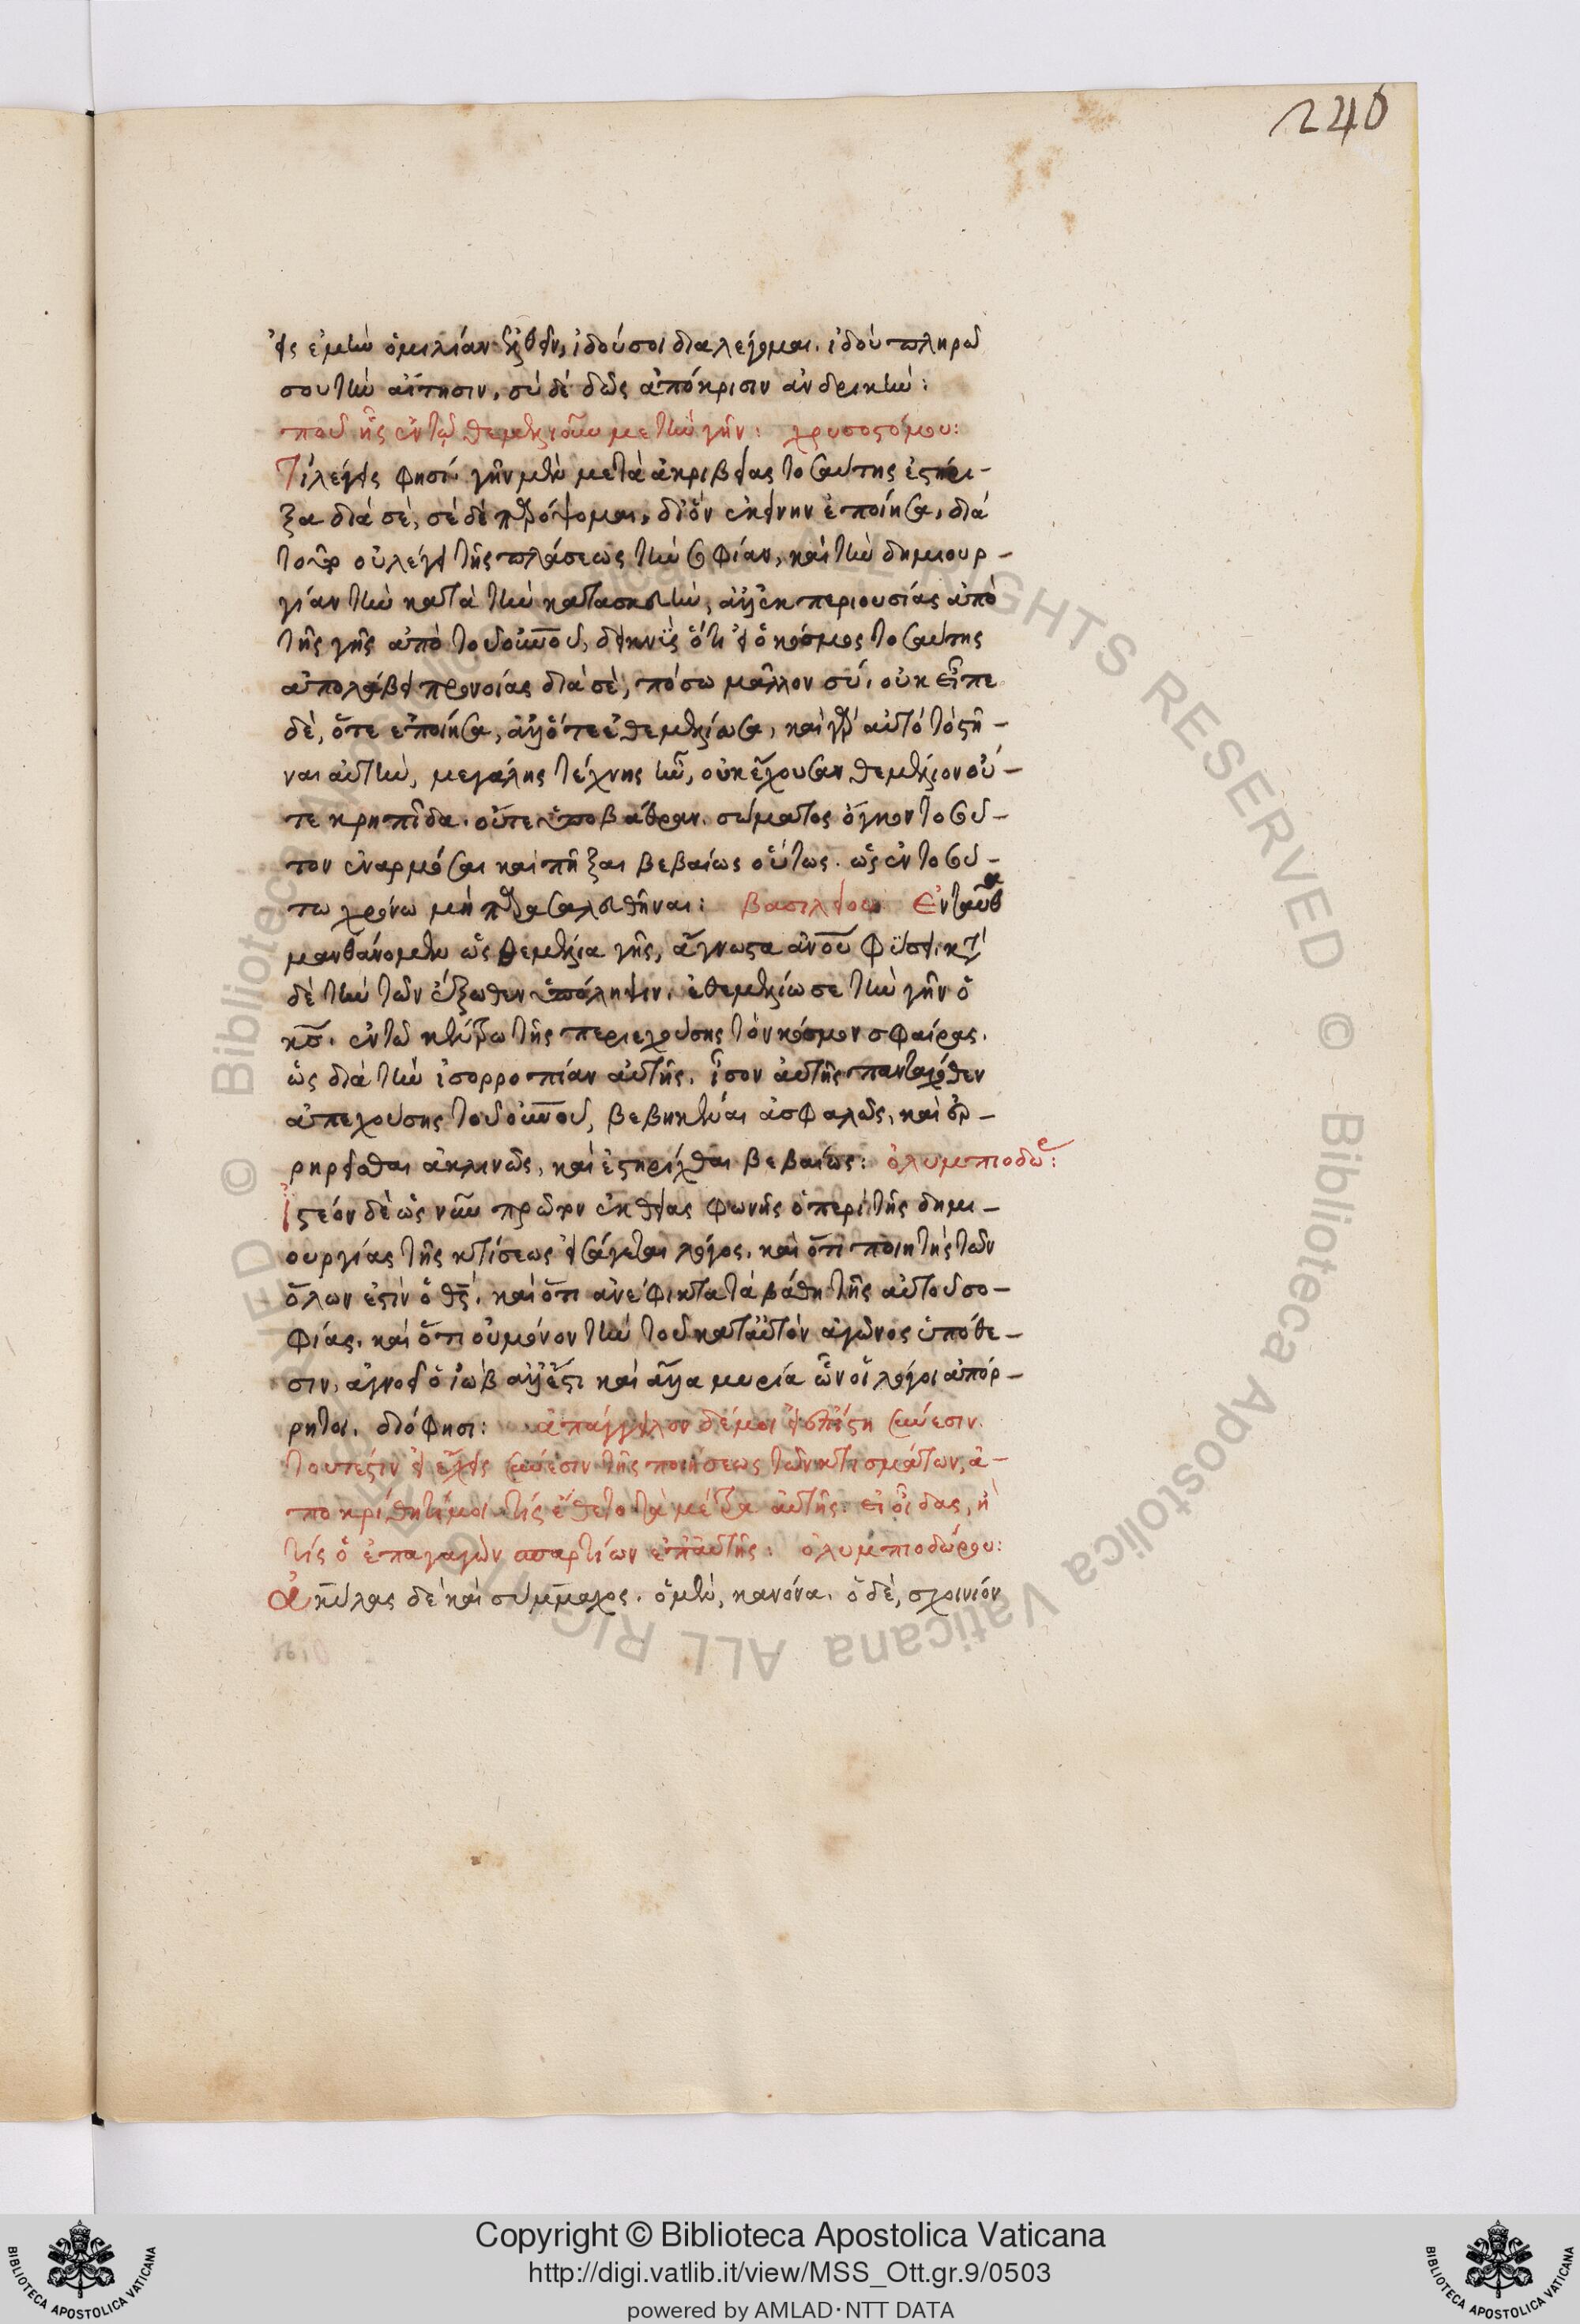 246
εἰς ἐμὴν ὁμιλίαν ἐλθεῖν, ἰδού σοι διαλέγομαι. ἰδοὺ πληρῶ
σου τὴν αἴτησιν, σὺ δὲ δὸς ἀπόκρισιν ἀνδρικήν:
ποῦ ἦς ἐν τῷ θεμελιοῦν με τὴν γῆν: χρυσοστόμου:
Τί λέγεις φησίν γῆν μὲν μετὰ ἀκριβείας τοσαύτης ἐστήρι-
ξα διὰ σὲ, σὲ δὲ παρόψομαι, δι' ὃν ἐκείνην ἐποίησα, διὰ
τοῦτο οὐ λέγει τῆς πλάσεως τὴν σοφίαν, καὶ τὴν δημιουρ-
γίαν τὴν κατὰ τὴν κατασκευήν, ἀλλ' ἐκ περιουσίας ἀπὸ
τῆς γῆς ἀπὸ τοῦ οὐνοῦ, δεικνὺς ὅτι εἰ ὁ κόσμος τοσαύτης
ἀπολαύει προνοίας διὰ σὲ, πόσω μᾶλλον σύ, οὐκ εἶπε
δὲ, ὅτε ἐποίησα, ἀλλ' ὅτε ἐθεμελίωσα, καὶ γὰρ αὐτὸ τὸ στῆ-
ναι αὐτὴν, μεγάλης τέχνης ἦν, οὐκ ἔχουσαν θεμέλιον οὔ-
τε κρηπῖδα. οὔτε ὑποβάθραν. σώματος ὄγκον τοσοῦ-
τον ἐναρμόσαι καὶ πῆξαι βεβαίως οὕτως. ὡς ἐν τοσού-
τω χρόνω μὴ παρασαλευθῆναι: βασιλείου Ἐνταῦθα
μανθάνομεν ὡς θεμέλια γῆς, ἄγνωστα ἀνου φύσει κατὰ
δὲ τὴν τῶν ἔξωθεν ὑπόληψιν. ἐθεμελίωσε τὴν γῆν ὁ
κς. ἐν τῶ κέντρω τῆς περιεχούσης τὸν κόσμον σφαίρας.
ὡς διὰ τὴν ἰσορροπίαν αὐτῆς. ἴσον αὐτῆς πανταχόθεν
ἀπεχούσης τοῦ οὐνοῦ, βεβηκέναι ἀσφαλῶς, καὶ ἐρ-
ρηρεῖσθαι ἀκλινῶς, καὶ ἐστηρίχθαι βεβαίως: ὀλυμπιοδώρ:
Ἰστέον δὲ ὡς νῦν πρῶτον ἐκ θείας φωνῆς ὁ περὶ τῆς δημι-
ουργίας τῆς κτίσεως εἰσάγεται λόγος. καὶ ὅτι ποιητὴς τῶν
ὅλων ἐστὶν ὁ θς. καὶ ὅτι ἀνέφικτα τὰ βάθη τῆς αὐτοῦ σο-
φίας. καὶ ὅτι οὐ μόνον τὴν τοῦ κατ' αὐτὸν ἀγῶνος ὑπόθε-
σιν, ἀγνοεῖ ὁ ἰὼβ ἀλλ' ἔστι καὶ ἄλλα μυρία ὧν οἱ λόγοι ἀπόρ-
ρητοι. διό φησι: ἀπάγγειλον δέ μοι εἰ ἐπίστη σύνεσιν.
τουτέστιν εἰ ἔχεις σύνεσιν τῆς ποιήσεως τῶν κτισμάτων, ἀ-
ποκρίθητί μοι. τίς ἔθετο τὰ μέτρα αὐτῆς. εἰ οἶδας, ἢ
τίς ὁ ἐπαγαγὼν σπαρτίον ἐπ' αὐτῆς: ὀλυμπιοδώρου:
Ἀκύλας δὲ καὶ σύμμαχος. ὁ μὲν, κανόνα. ὁ δὲ, σχοινίον
Copyright © Biblioteca Apostolica Vaticana
http://digi.vatlib.it/view/MSS_Ott.gr.9/0503
powered by AMLAD·NTT DATA